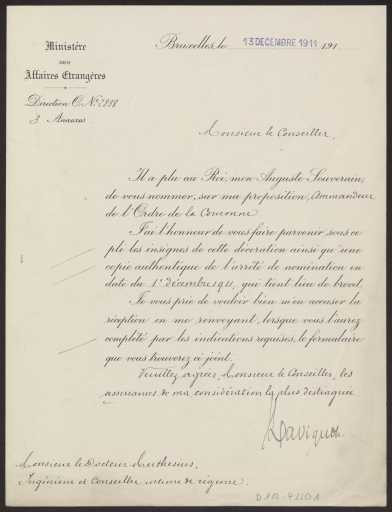 Ministère
DES
Affaires Étrangères
Direction O. No 2998
3 Annexes
Bruxelles, le 13 DÉCEMBRE 1911 191
Monsieur le Conseiller,
Il a plu au Roi, mon Auguste Souverain,
de vous nommer, sur ma proposition, Commandeur
de l'Ordre de la Couronne
J'ai l'honneur de vous faire parvenir sous ce
pli les insignes de cette décoration ainsi qu'une
copie authentique de l'arrêté de nomination en
date du 1r décembre 1911, qui tient lieu de brevet.
Je vous prie de vouloir bien m'en accuser la
réception en me renvoyant, lorsque vous l'aurez
complété par les indications requises, le formulaire
que vous trouverez ci joint.
Veuillez agréer, Monsieur le Conseiller, les
assurances de ma considération la plus distinguée
Davignon
Monsieur le Docteur Muthesius,
Ingénieur et Conseiller intime de régence